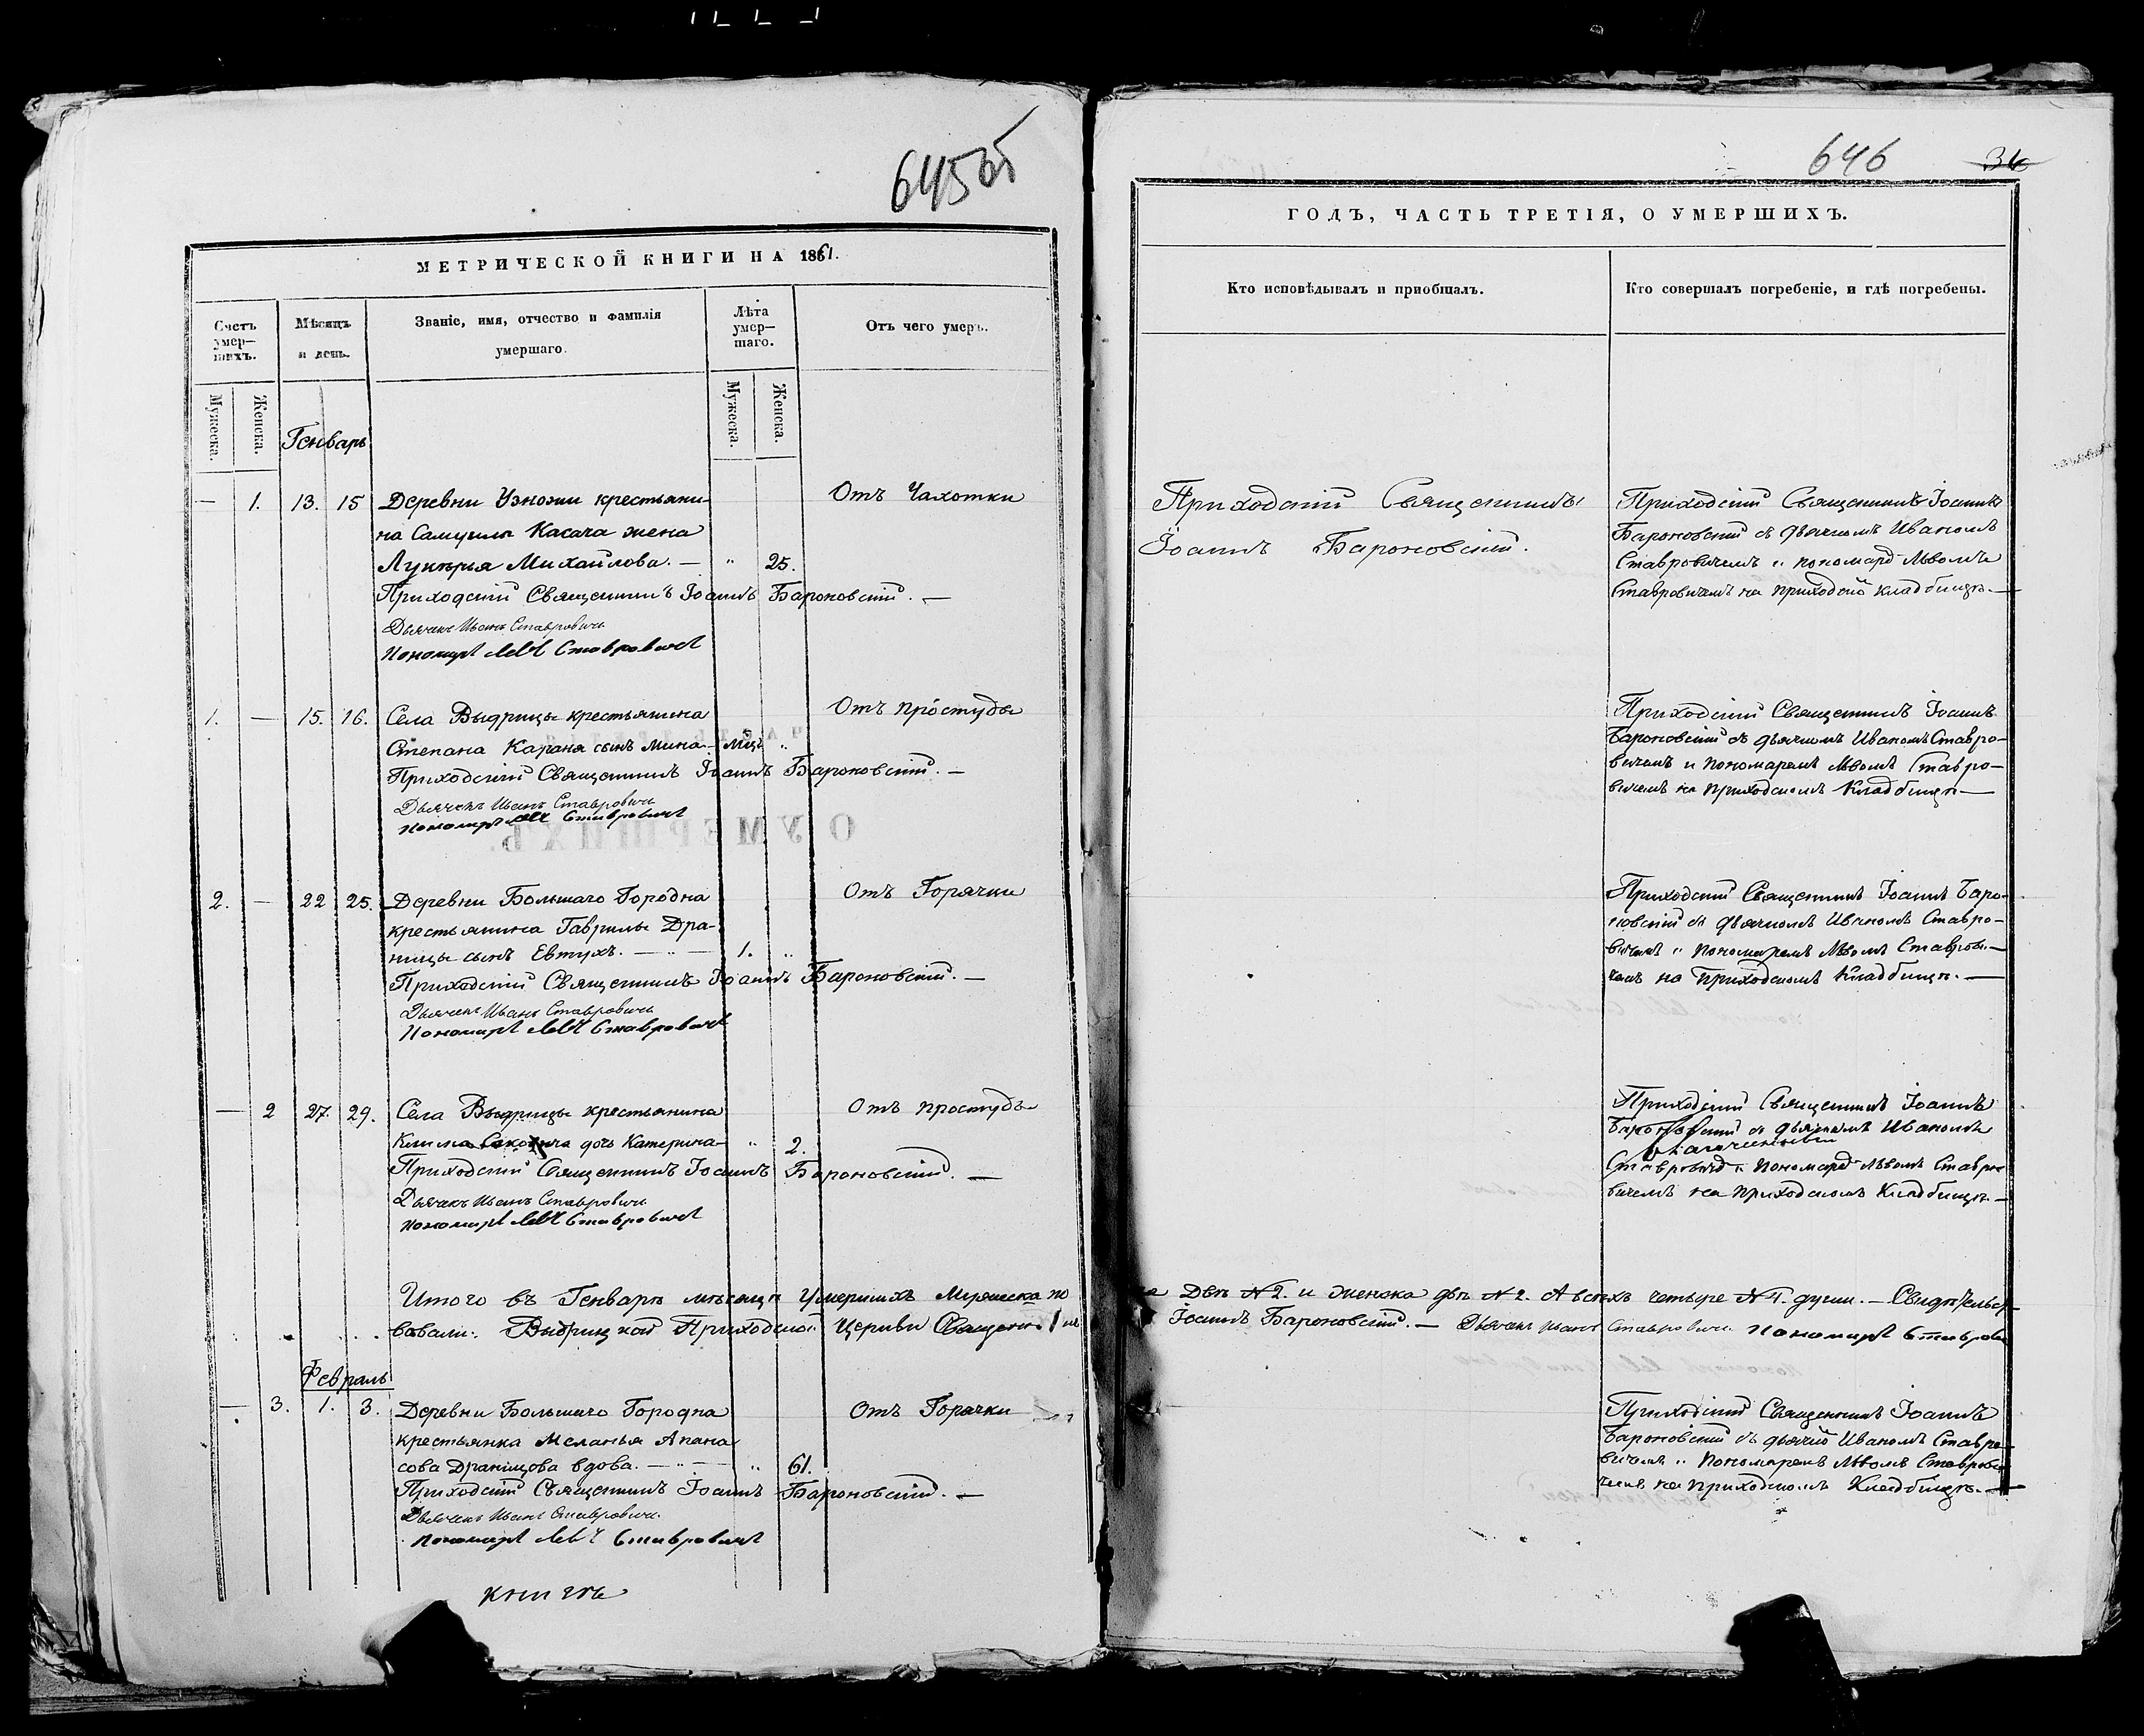 645об
МЕТРИЧЕСКОЙ КНИГИ НА 1861.
Счетъ умер-шихъ.
Мѣсяцъ и день.
Званіе, имя, отчество и фамилія умершаго.
Лѣта умер-шаго.
Отъ чего умеръ.
Мужеска.
Женска.
Мужеска.
Женска.
Генварь
— 1. 13. 15 Деревни Узножи крестьяни- Отъ Чахотки
на Самуила Касача жена
Лукерья Михайлова. — " 25.
Приходскій Священникъ Іоаннъ Бароновскій. —
Дьячекъ Иванъ Ставровичъ
Пономарь Левъ Ставровичъ
1. — 15. 16. Села Выдрицы крестьянина Отъ простуды
Степана Караня сынъ Мина — мцъ "
Приходскій Священникъ Іоаннъ Бароновскій. —
Дьячекъ Иванъ Ставровичъ
Пономарь Левъ Ставровичъ
2. — 22 25. Деревни Большаго Городна Отъ Горячки
крестьянина Гаврилы Дра-
ницы сынъ Евтухъ. — " — 1. "
Приходскій Священникъ Іоаннъ Бароновскій. —
Дьячекъ Иванъ Ставровичъ
Пономарь Левъ Ставровичъ
— 2 27. 29. Села Выдрицы крестьянина Отъ простуды
Клима дочь Катерина — " 2.
Приходскій Священникъ Іоаннъ Бароновскій. —
Дьячекъ Иванъ Ставровичъ
Пономарь Левъ Ставровичъ
Итого въ Генварѣ мѣсяцѣ Умершихъ Мужеска по
вовали: Выдрицкой Приходской Церкви Священ.
Февраль
— 3. 1. 3. Деревни Большаго Городна Отъ Горячки
крестьянка Меланья Апана
сова Драницова вдова. — " — " 61.
Приходскій Священникъ Іоаннъ Бароновскій. —
Дьячекъ Иванъ Ставровичъ.
Пономарь Левъ Ставровичъ
книгъ
646 36
ГОДЪ, ЧАСТЬ ТРЕТІЯ, О УМЕРШИХЪ.
Кто исповѣдывалъ и приобщалъ.
Кто совершалъ погребеніе, и гдѣ погребены.
Приходскій Священникъ
Іоаннъ Бароновскій.
Приходскій Священникъ Іоаннъ
Бароновскій съ дьячкомъ Иваномъ
Ставровичемъ и пономаремъ Львомъ
Ставровичемъ на приходскомъ кладбищѣ. —
Приходскій Священникъ Іоаннъ
Бароновскій съ дьячкомъ Иваномъ Ставро-
вичемъ и Пономаремъ Львомъ Ставро-
вичемъ на приходскомъ Кладбищѣ —
Приходскій Священникъ Іоаннъ Баро-
новскій съ дьячкомъ Иваномъ Ставро-
вичемъ и Пономаремъ Львомъ Ставрови-
чемъ на приходскомъ Кладбищѣ. —
Приходскій Священникъ Іоаннъ
Бароновскій съ дьячкомъ Иваномъ
Ставровичемъ и Пономаремъ Львомъ Ставро
вичемъ на приходскомъ Кладбищѣ. —
Двѣ №2. и женска двѣ №2. А всѣхъ четыре №4. души. — Свидѣтельст-
Іоаннъ Бароновскій. — Дьячекъ Иванъ Ставровичъ. Пономарь Ставрови
Приходскій Священникъ Іоаннъ
Бароновскій съ дьячкомъ Иваномъ Ставро-
вичемъ и Пономаремъ Львомъ Ставрови
чемъ на приходскомъ Кладбищѣ. —